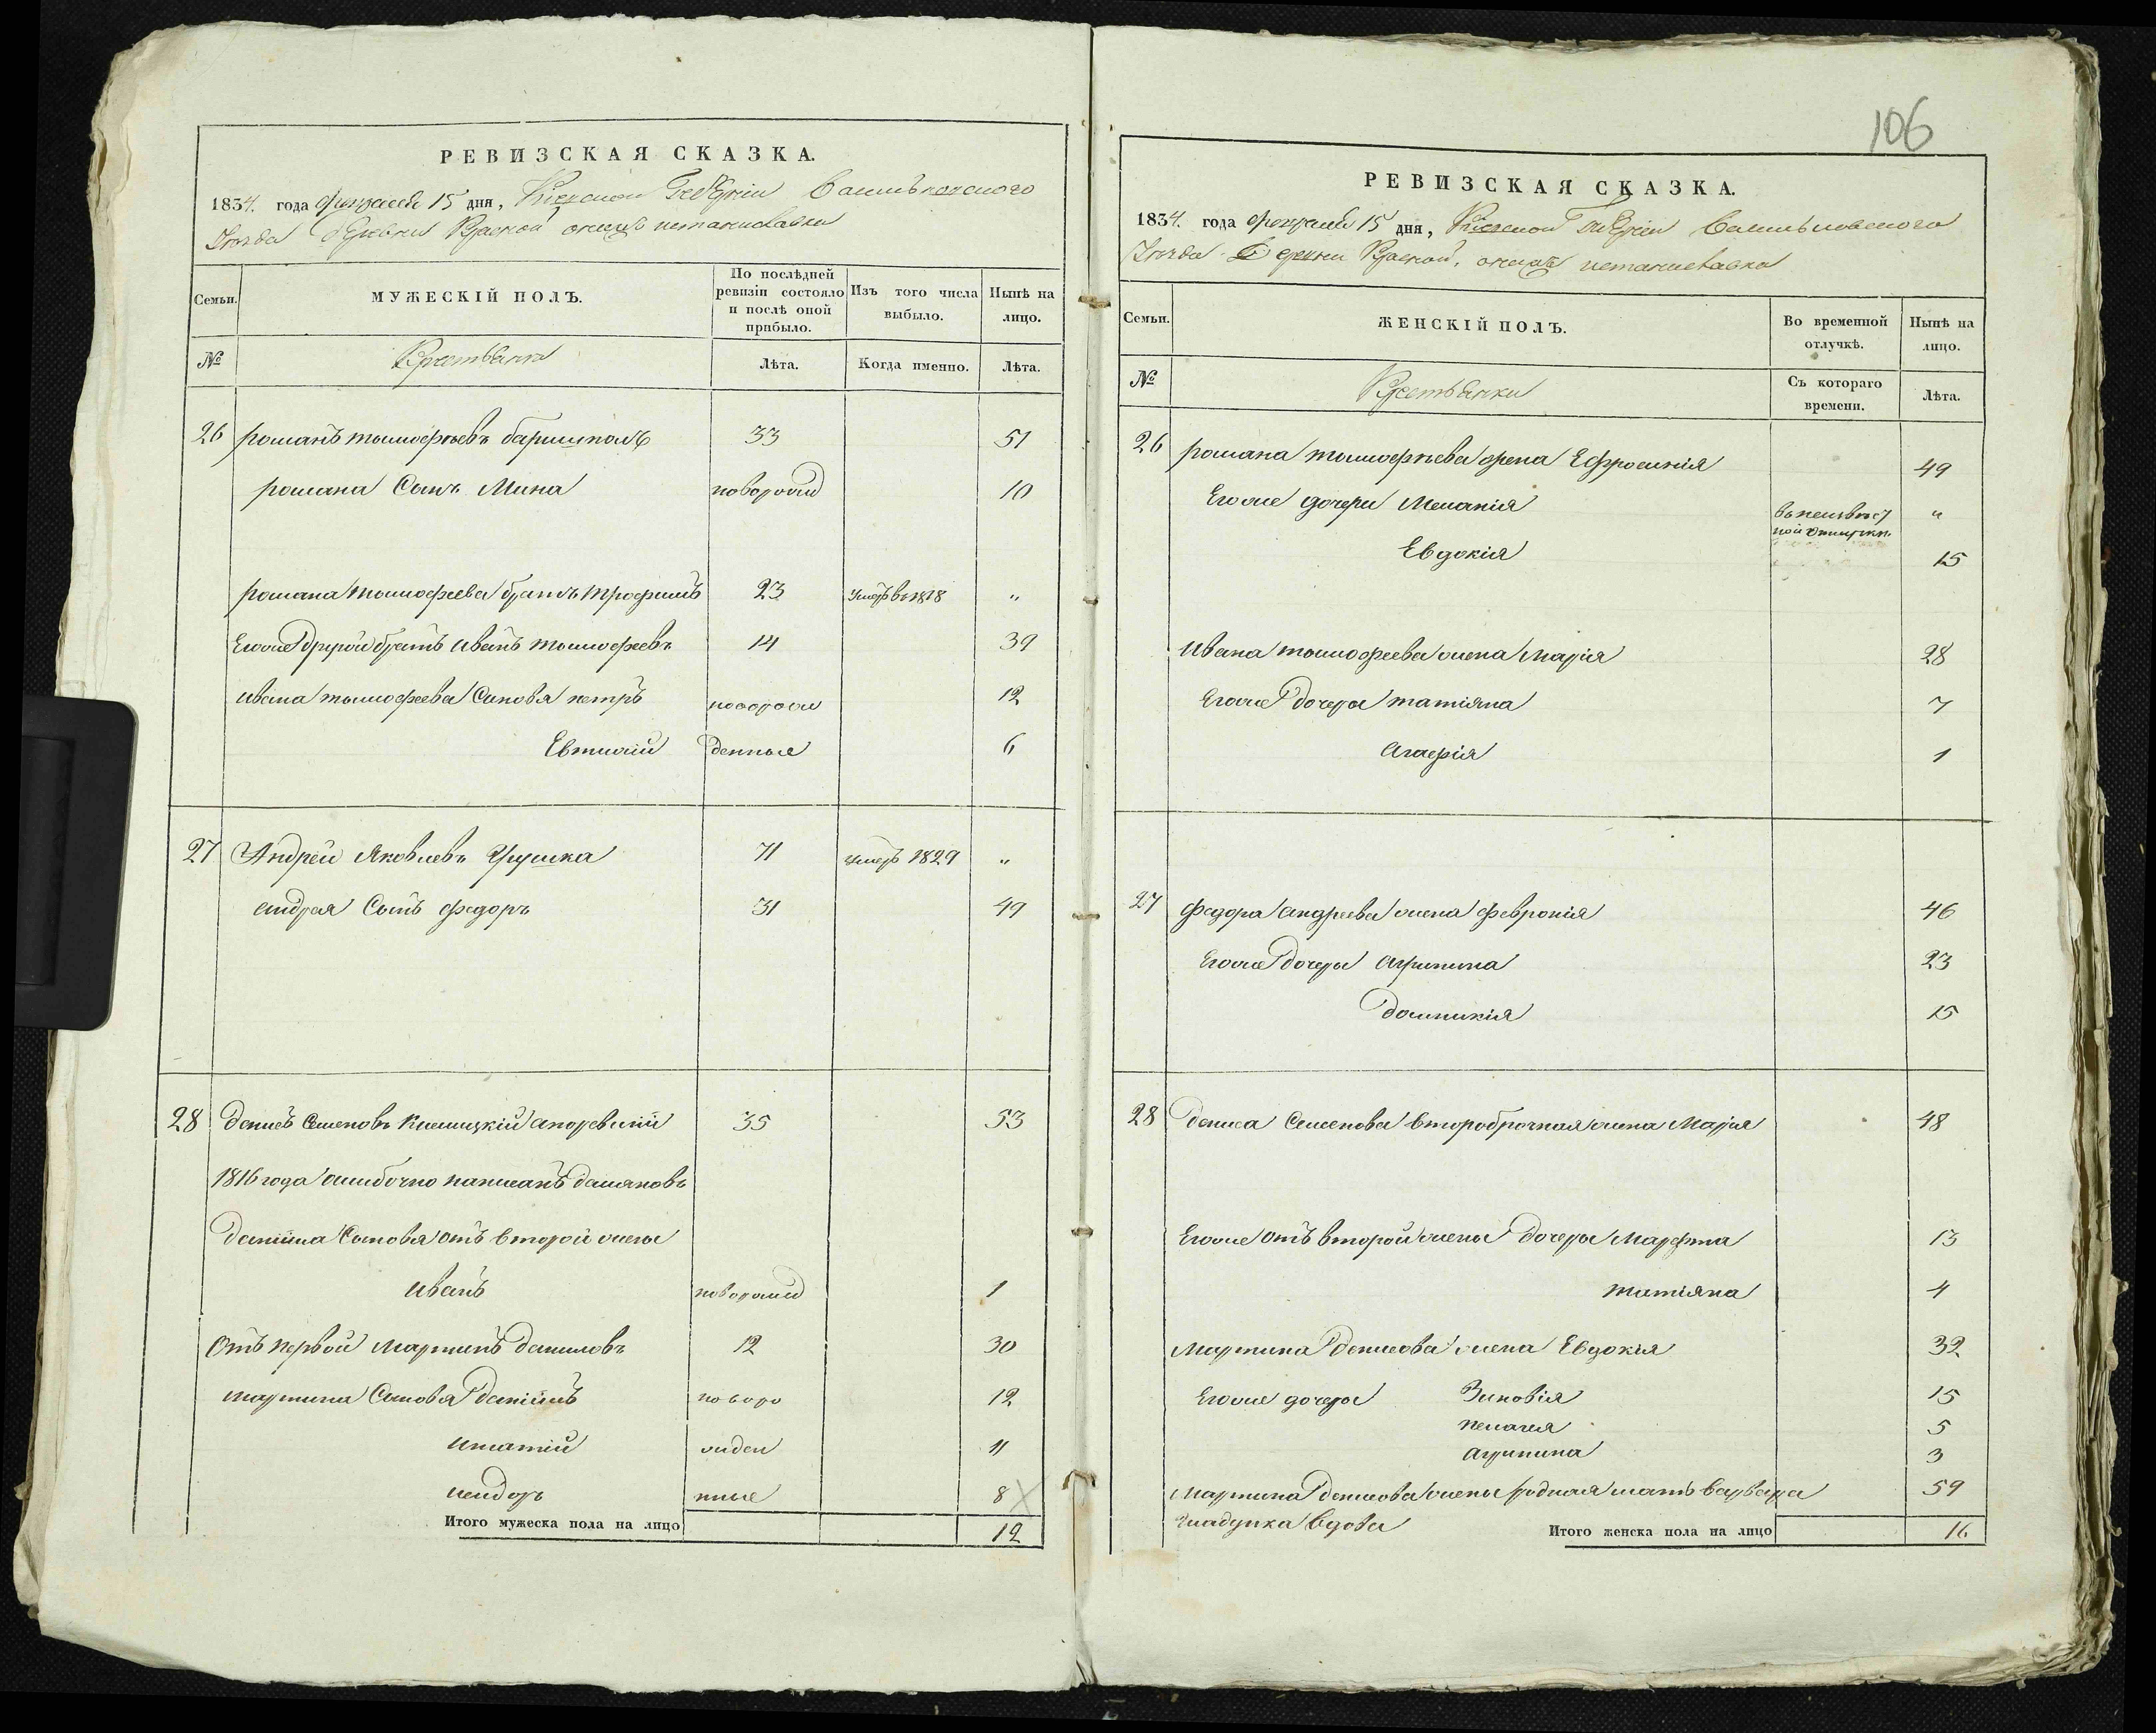 РЕВИЗСКАЯ СКАЗКА.
1834. года февраля 15 дня, Кіевской Губерніи Васильковского
Уезда деревни Красной
Семьи.
МУЖЕСКІЙ ПОЛЪ.
По послѣдней ревизіи состояло и послѣ оной прибыло.
Изъ того числа выбыло.
Нынѣ на лицо.
№
Крестьяни
Лѣта.
Когда именно.
Лѣта.
26 романъ тымофѣевъ 33 51
романа Сынъ Мина новорожд 10
романа тымофеева братъ трофимъ 23 умеръ въ 1818 „
Егоже другой братъ иванъ тымофеевъ 14 39
ивана тымофеева Синовя петръ новорож 12
Евтихій денные 6
27 Андрей Яковлевъ 71 умеръ 1829 „
андрея Сынъ федоръ 31 49
28 денисъ Семеновъ 35 53
1816 года ошибочно написанъ
Сыновя отъ второй жены
иванъ новорожд 1
отъ первой мартинъ 12 30
мартина Синовя новоро 12
игнатій жден 11
исидоръ нные 8
Итого мужеска пола на лицо 12
106
РЕВИЗСКАЯ СКАЗКА.
1834. года февраля 15 дня, Кіевской Губерніи Васильковского
Уезда Деревни Красной,
Семьи.
ЖЕНСКІЙ ПОЛЪ.
Во временной отлучкѣ.
Нынѣ на лицо.
№
Крестьянки
Съ котораго времени.
Лѣта.
26 романа тымофѣева жена Ефросинія 49
Егоже дочери Меланія въ неизвѣст „
ной отлучкѣ
Евдокія 15
ивана тымофеева жена Марія 28
Егоже дочеры татіяна 7
Агафія 1
27 федора андреева жена февронія 46
Егоже дочеры агрипина 23
домникія 15
28 дениса Семенова второбрачная жена Марія 48
Егоже отъ второй жены дочеры Марфта 13
татіяна 4
мартина денисова жена Евдокія 32
Егоже дочеры Зиновія 15
пелагея 5
агрипина 3
мартина денисова жены родная мать варвара 59
вдова
Итого женска пола на лицо 16